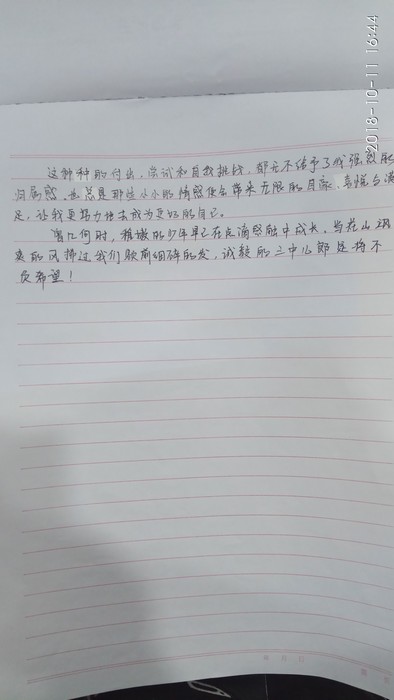 这种种的付出、尝试和自我挑战，都无不给予了我强烈的
归属感。也总是那些小小的情感使会带来无限的自豪、喜悦与满
足，让我更努力地去成为更好的自己。
曾几何时，稚嫩的少年早已在点滴感触中成长。当花山翊
爽的风拂过我们额前细碎的发，诚毅的三中儿郎定将不
负希望！
2018-10-11 16:44